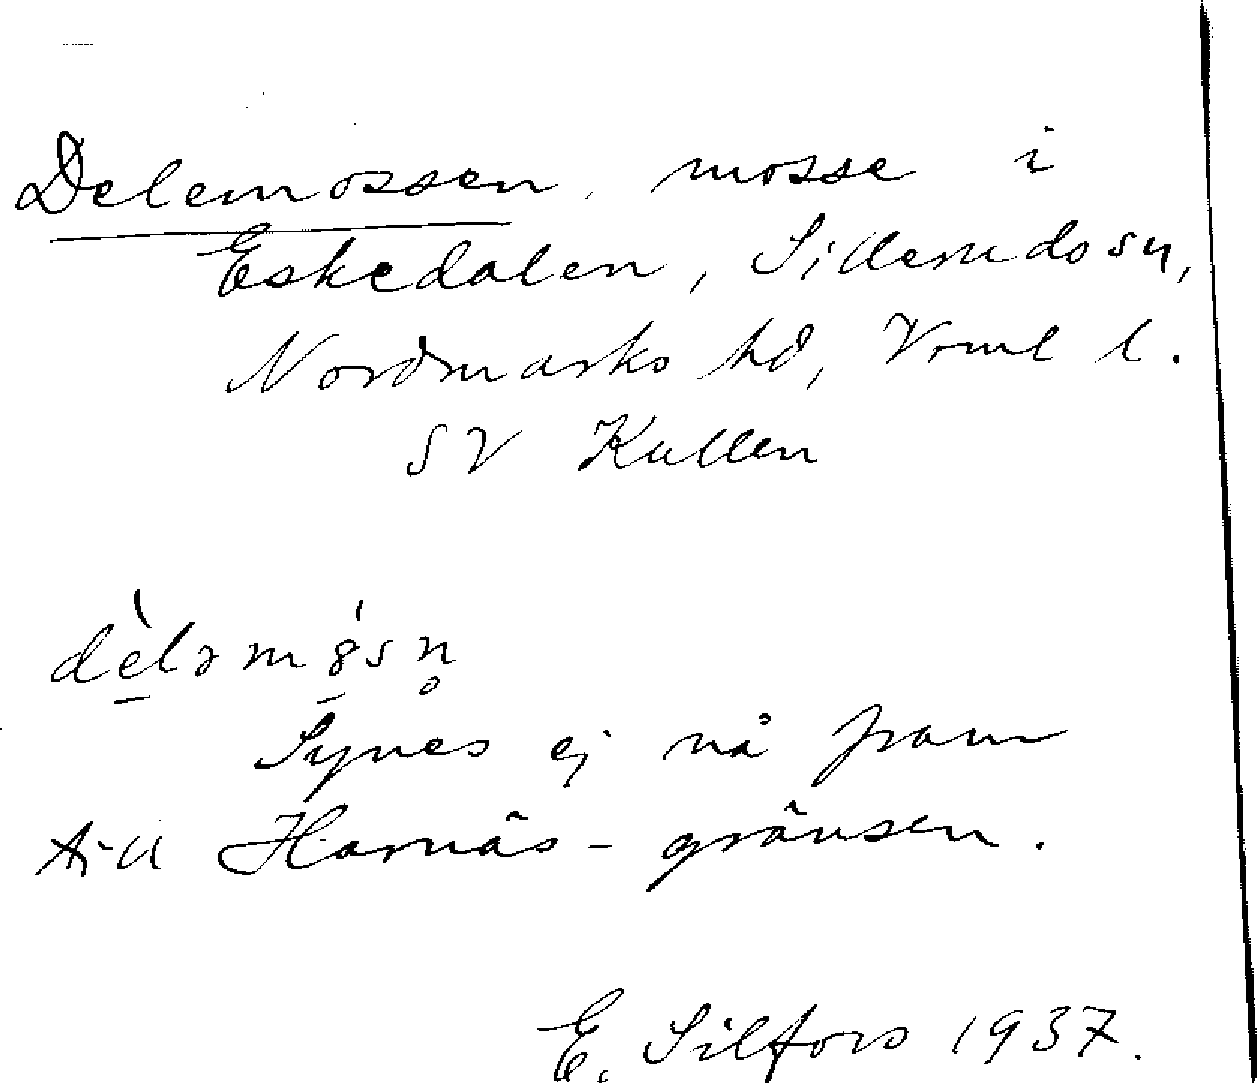 Delemossen, mosse i
Eskedalen, Sillerudssn,
Nordmarks hd, Vrml l.
SV Kullen
Synes ej nå fram
till Harnäs-gränsen.
E. Silfors 1937.